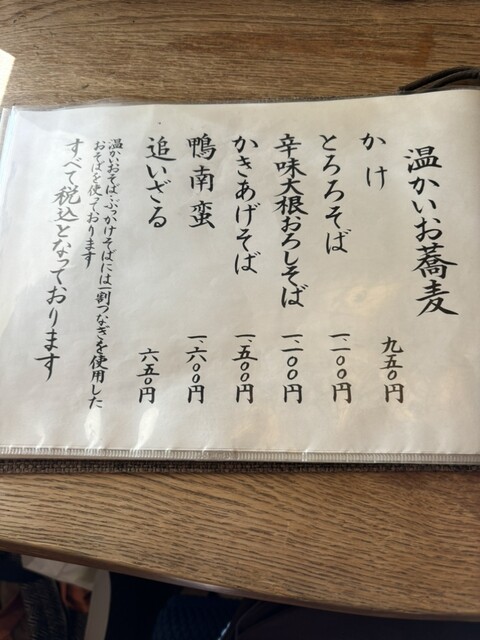 温かいお蕎麦
かけ 九五〇円
とろろそば 一、一〇〇円
辛味大根おろしそば 一、一〇〇円
かきあげそば 一、五〇〇円
鴨南蛮 一、六〇〇円
追いざる 六五〇円
温かいおそば・ぶっかけそばには一割つなぎを使用した
おそばを使っております
すべて税込となっております